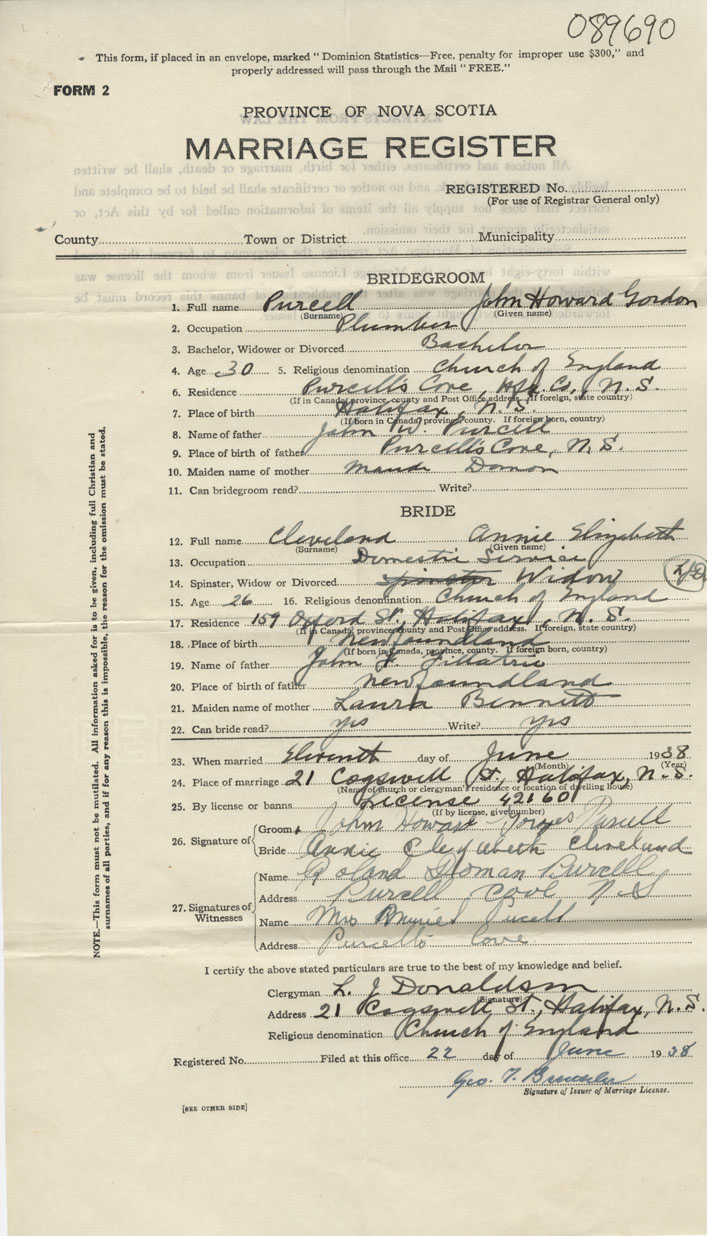 089690
This form, if placed in an envelope, marked "Dominion Statistics—Free, penalty for improper use $300," and
properly addressed will pass through the Mail "FREE."
FORM 2
PROVINCE OF NOVA SCOTIA
MARRIAGE REGISTER
REGISTERED No.
(For use of Registrar General only)
County Town or District Municipality
BRIDEGROOM
1. Full name Purcell John Howard Gordon
(Surname) (Given name)
2. Occupation Plumber
3. Bachelor, Widower or Divorced Bachelor
4. Age 30 5. Religious denomination Church of England
6. Residence Purcell's Cove, Hfx. Co., N. S.
(If in Canada, province, county and Post Office address. If foreign, state country)
7. Place of birth Halifax, N. S.
(If born in Canada, province, county. If foreign born, country)
8. Name of father John W. Purcell
9. Place of birth of father Purcell's Cove, N. S.
10. Maiden name of mother Maude
11. Can bridegroom read? Write?
BRIDE
12. Full name Cleveland Annie Elizabeth
(Surname) (Given name)
13. Occupation Domestic Service
14. Spinster, Widow or Divorced Spinster Widow
15. Age 26 16. Religious denomination Church of England
17. Residence 159 Oxford St., Halifax, N. S.
(If in Canada, province, county and Post Office address. If foreign, state country)
18. Place of birth Newfoundland
(If born in Canada, province, county. If foreign born, country)
19. Name of father John
20. Place of birth of father Newfoundland
21. Maiden name of mother Laura Bennett
22. Can bride read? yes Write? yes
23. When married Eleventh day of June 1938
(Month) (Year)
24. Place of marriage 21 Cogswell St., Halifax, N. S.
(Name of church or clergyman's residence or location of dwelling house)
25. By license or banns License 42160
(If by license, give number)
26. Signature of
Groom John Howard Purcell
Bride Annie Elizabeth Cleveland
27. Signatures of Witnesses
Name Roland Purcell
Address Purcell Cove N S
Name Mrs Purcell
Address Purcells Cove
I certify the above stated particulars are true to the best of my knowledge and belief.
Clergyman L. J. Donaldson
(Signature)
Address 21 Cogswell St., Halifax, N. S.
Religious denomination Church of England
Registered No. Filed at this office 22 day of June 1938
Geo. T.
Signature of Issuer of Marriage License.
[SEE OTHER SIDE]
NOTE.—This form must not be mutilated. All information asked for is to be given, including full Christian and
surnames of all parties, and if for any reason this is impossible, the reason for the omission must be stated.